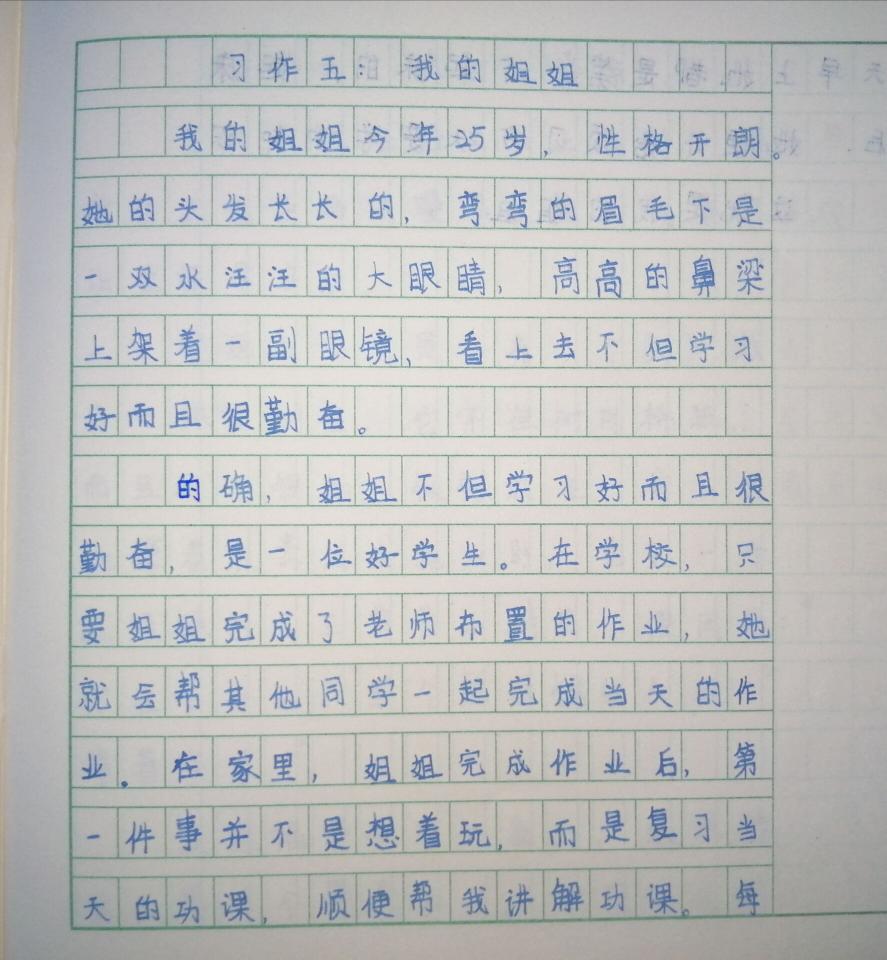 习作五：我的姐姐
我的姐姐今年25岁，性格开朗。
她的头发长长的，弯弯的眉毛下是
一双水汪汪的大眼睛，高高的鼻梁
上架着一副眼镜，看上去不但学习
好而且很勤奋。
的确，姐姐不但学习好而且很
勤奋，是一位好学生。在学校，只
要姐姐完成了老师布置的作业，她
就会帮其他同学一起完成当天的作
业。在家里，姐姐完成作业后，第
一件事并不是想着玩，而是复习当
天的功课，顺便帮我讲解功课。每